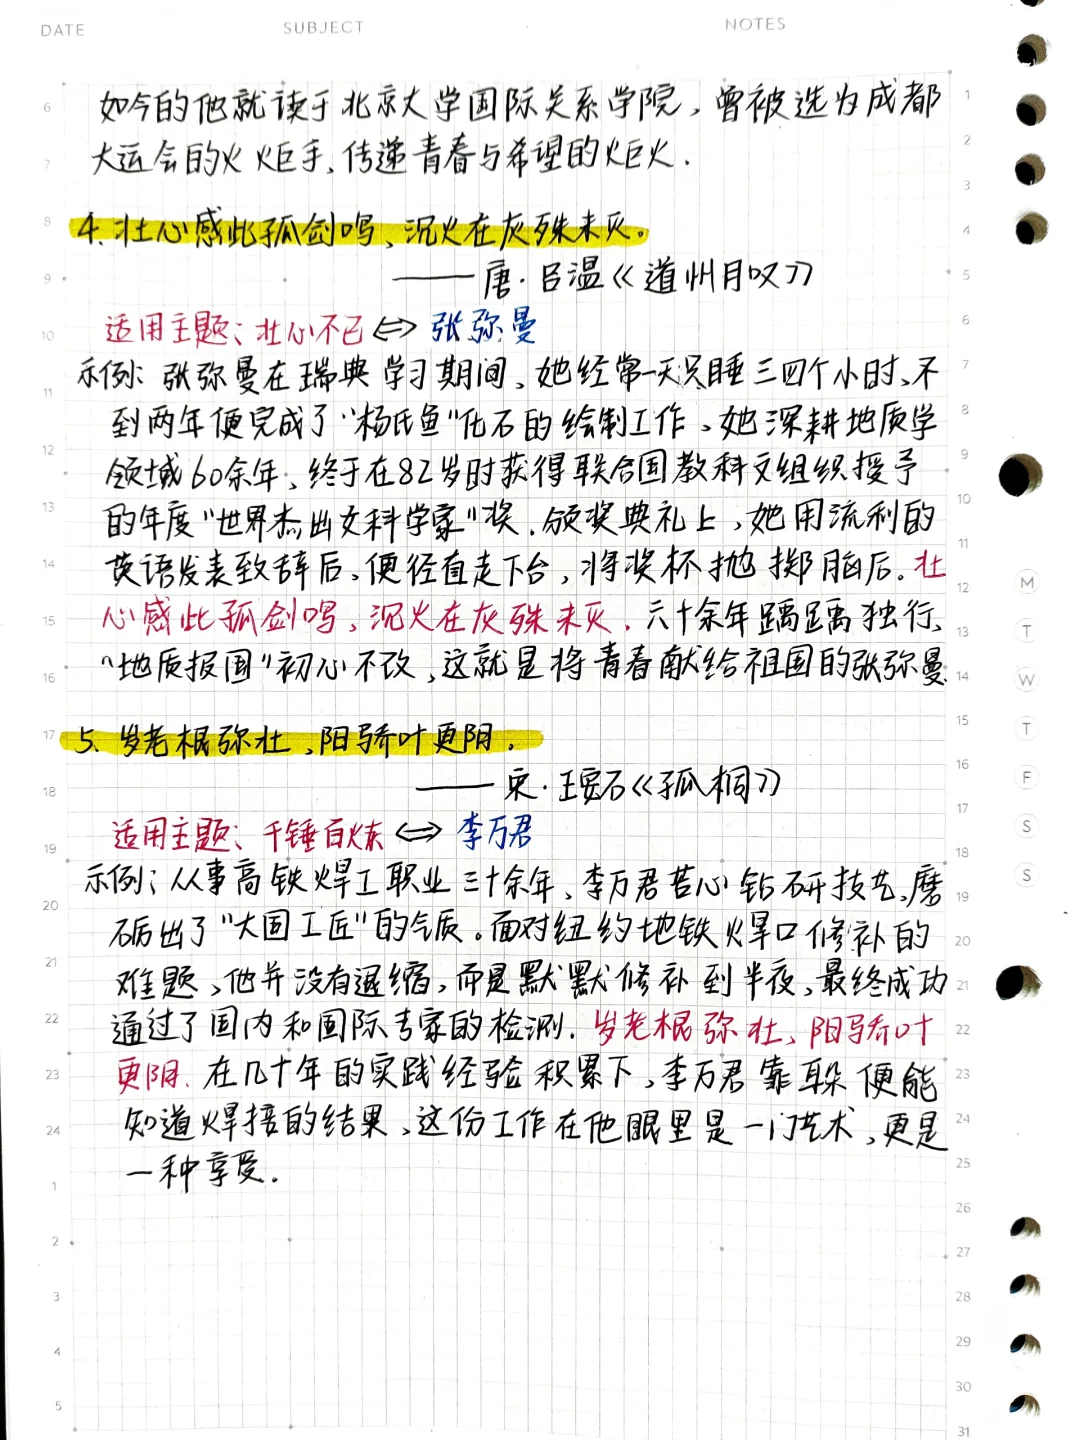 DATE SUBJECT NOTES
如今的他就读于北京大学国际关系学院，曾被选为成都
大运会的火炬手、传递青春与希望的火巨火．
4、壮心感此孤剑鸣、沉火在灰殊未灭。
——唐·吕温《道州月叹》
适用主题：壮心不已⇔张弥曼
示例：张弥曼在瑞典学习期间、她经常一天只睡三四个小时、不
到两年便完成了“杨氏鱼”化石的绘制工作、她深耕地质学
领域60余年，终于在82岁时获得联合国教科文组织授予
的年度“世界杰出女科学家”奖．颁奖典礼上，她用流利的
英语发表致辞后、便径直走下台，将奖杯抛掷脑后。壮
心感此孤剑鸣，沉火在灰殊未灭．六十余年踽踽独行、
“地质报国”初心不改，这就是将青春献给祖国的张弥曼．
5、岁老根弥壮，阳骄叶更阴．
——宋·王安石《孤桐》
适用主题：千锤百炼⇔李万君
示例：从事高铁焊工职业三十余年，李万君苦心钻研技艺，磨
砺出了“大国工匠”的气质。面对纽约地铁焊口修补的
难题，他并没有退缩，而是默默修补到半夜，最终成功
通过了国内和国际专家的检测．岁老根弥壮，阳骄叶
更阴．在几十年的实践经验积累下，李万君靠耳朵便能
知道焊接的结果，这份工作在他眼里是一门艺术，更是
一种享受．
6
7
8
9
10
11
12
13
14
15
16
17
18
19
20
21
22
23
24
1
2
3
4
5
1
2
3
4
5
6
7
8
9
10
11
12
13
14
15
16
17
18
19
20
21
22
23
24
25
26
27
28
29
30
31
M
T
W
T
F
S
S